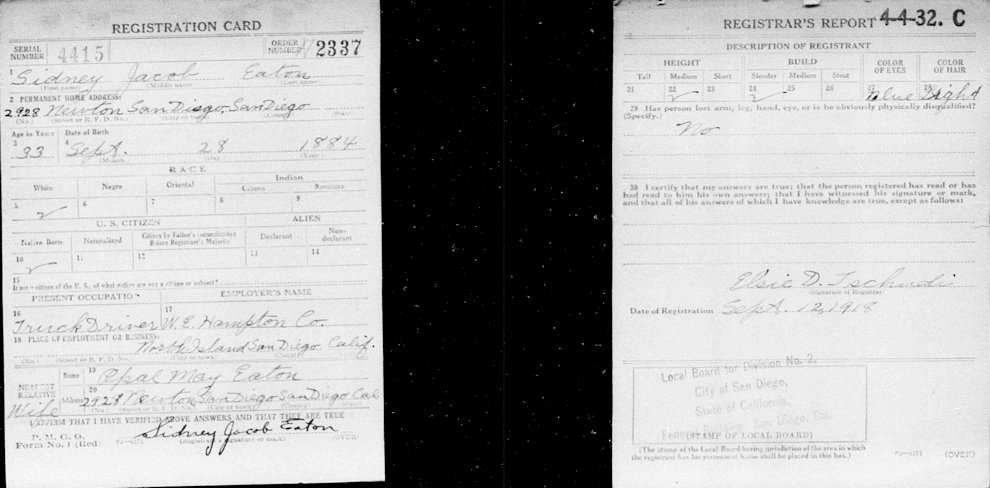 REGISTRATION CARD
SERIAL NUMBER 4415 ORDER NUMBER 2337
1 Sidney Jacob Eaton
(First name) (Middle name) (Last name)
2 PERMANENT HOME ADDRESS:
2928 Newton San Diego, San Diego
(No.) (Street or R. F. D. No.) (City or town) (County) (State)
Age in Years Date of Birth
3 33 4 Sept. 28 1884
(Month) (Day) (Year)
RACE
White Negro Oriental Indian
Citizen Noncitizen
5 6 7 8 9
U. S. CITIZEN ALIEN
Native Born Naturalized Citizen by Father's Naturalization Before Registrant's Majority Declarant Non-declarant
10 11 12 13 14
15
If not a citizen of the U. S., of what nation are you a citizen or subject?
PRESENT OCCUPATION EMPLOYER'S NAME
16 17
Truck Driver W. E. Hampton Co.
18 PLACE OF EMPLOYMENT OR BUSINESS:
North Island San Diego Calif.
(No.) (Street or R. F. D. No.) (City or town) (County)
NEAREST RELATIVE Name 19 Opal May Eaton
Wife Address 20 2928 Newton San Diego San Diego Cal
(No.) (Street or R. F. D. No.) (City or town) (County)
I AFFIRM THAT I HAVE VERIFIED ABOVE ANSWERS AND THAT THEY ARE TRUE
P. M. G. O.
Form No. 1 (Red) Sidney Jacob Eaton
(Registrant's signature or mark) (OVER)
REGISTRAR'S REPORT 4-4-32. C
DESCRIPTION OF REGISTRANT
HEIGHT BUILD COLOR OF EYES COLOR OF HAIR
Tall Medium Short Slender Medium Stout
21 22 23 24 25 26 27 Blue 28 Light
29 Has person lost arm, leg, hand, eye, or is he obviously physically disqualified?
(Specify.)
No
30 I certify that my answers are true; that the person registered has read or has
had read to him his own answers; that I have witnessed his signature or mark,
and that all of his answers of which I have knowledge are true, except as follows:
Elsie D. Tschudi
(Signature of Registrar)
Date of Registration Sept. 12, 1918
Local Board for Division No. 2,
City of San Diego,
State of California,
Federal Building, San Diego,
(STAMP OF LOCAL BOARD)
(The stamp of the Local Board having jurisdiction of the area in which
the registrant has his permanent home shall be placed in this box.)
(OVER)